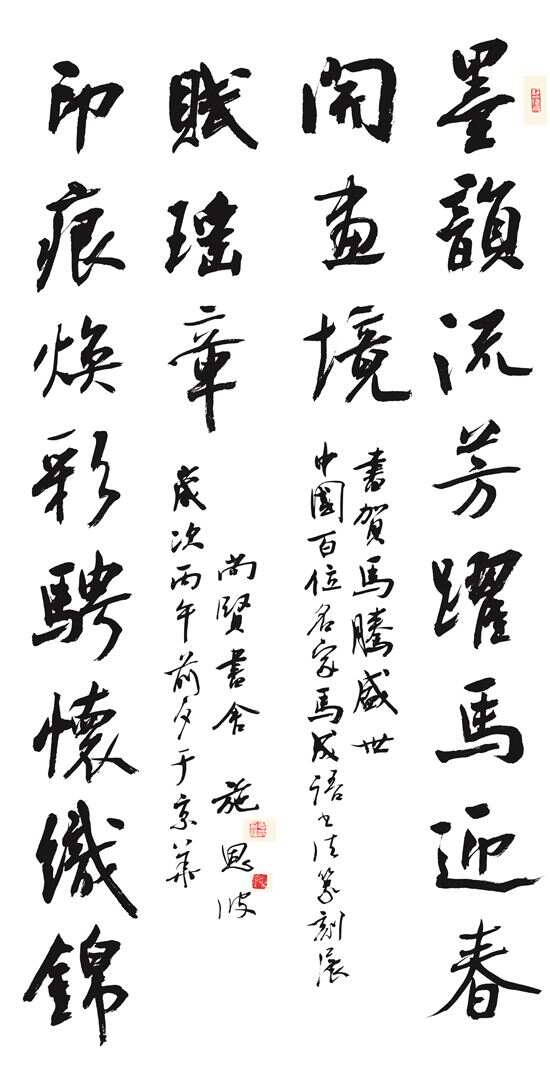 墨韻流芳躍馬迎春
開畫境
書賀馬騰盛世
中國百位名家馬成語书法篆刻展
印痕煥彩騁懷織錦
賦瑤章
歲次丙午前夕于京華
尚賢書舍 施恩波